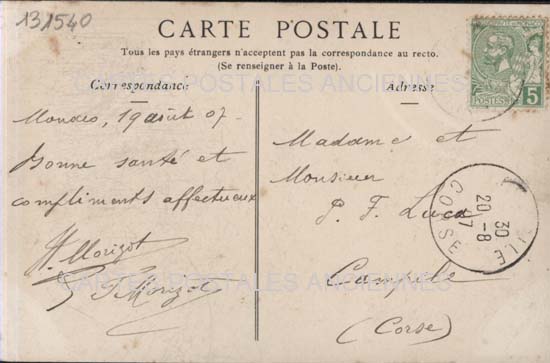 131540
CARTE POSTALE
Tous les pays étrangers n'acceptent pas la correspondance au recto.
(Se renseigner à la Poste).
CARTES POSTALES ANCIENNES
Correspondance
Adresse
POSTES 5
19 août 07
Bonne santé et
compliments affectueux
H. Morizot
J. Morizot
Madame et
Monsieur
P. F. Luca
Campile
(Corse)
30
20-8
07
CORSE
CARTES POSTALES ANCIENNES